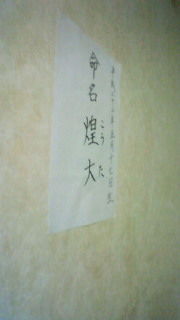 平成二十二年五月十七日生
命名 煌大
こうた